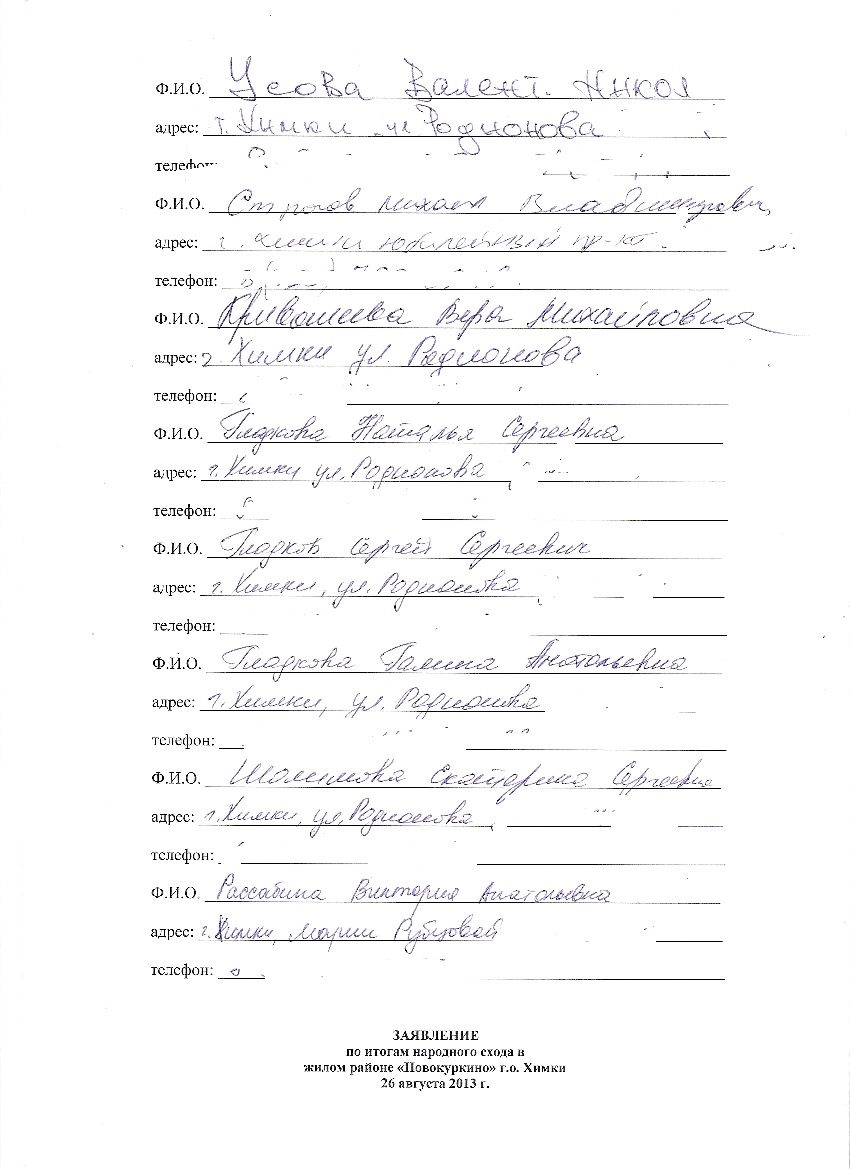 Ф.И.О. Усова Валент. Никол
адрес: г. Химки ул Родионова
телефон:
Ф.И.О. Михаил Владимирович
адрес: г. Химки юбилейный пр-кт.
телефон:
Ф.И.О. Кривошеева Вера Михайловна
адрес: г Химки ул. Родионова
телефон:
Ф.И.О. Гладкова Наталья Сергеевна
адрес: г. Химки ул. Родионова
телефон:
Ф.И.О. Гладков Сергей Сергеевич
адрес: г. Химки, ул. Родионова
телефон:
Ф.И.О. Гладкова Галина Анатольевна
адрес: г. Химки, ул. Родионова
телефон:
Ф.И.О. Екатерина Сергеевна
адрес: г. Химки, ул. Родионова
телефон:
Ф.И.О. Виктория Анатольевна
адрес: г. Химки, Марии Рубцовой
телефон:
ЗАЯВЛЕНИЕ
по итогам народного схода в
жилом районе «Новокуркино» г.о. Химки
26 августа 2013 г.